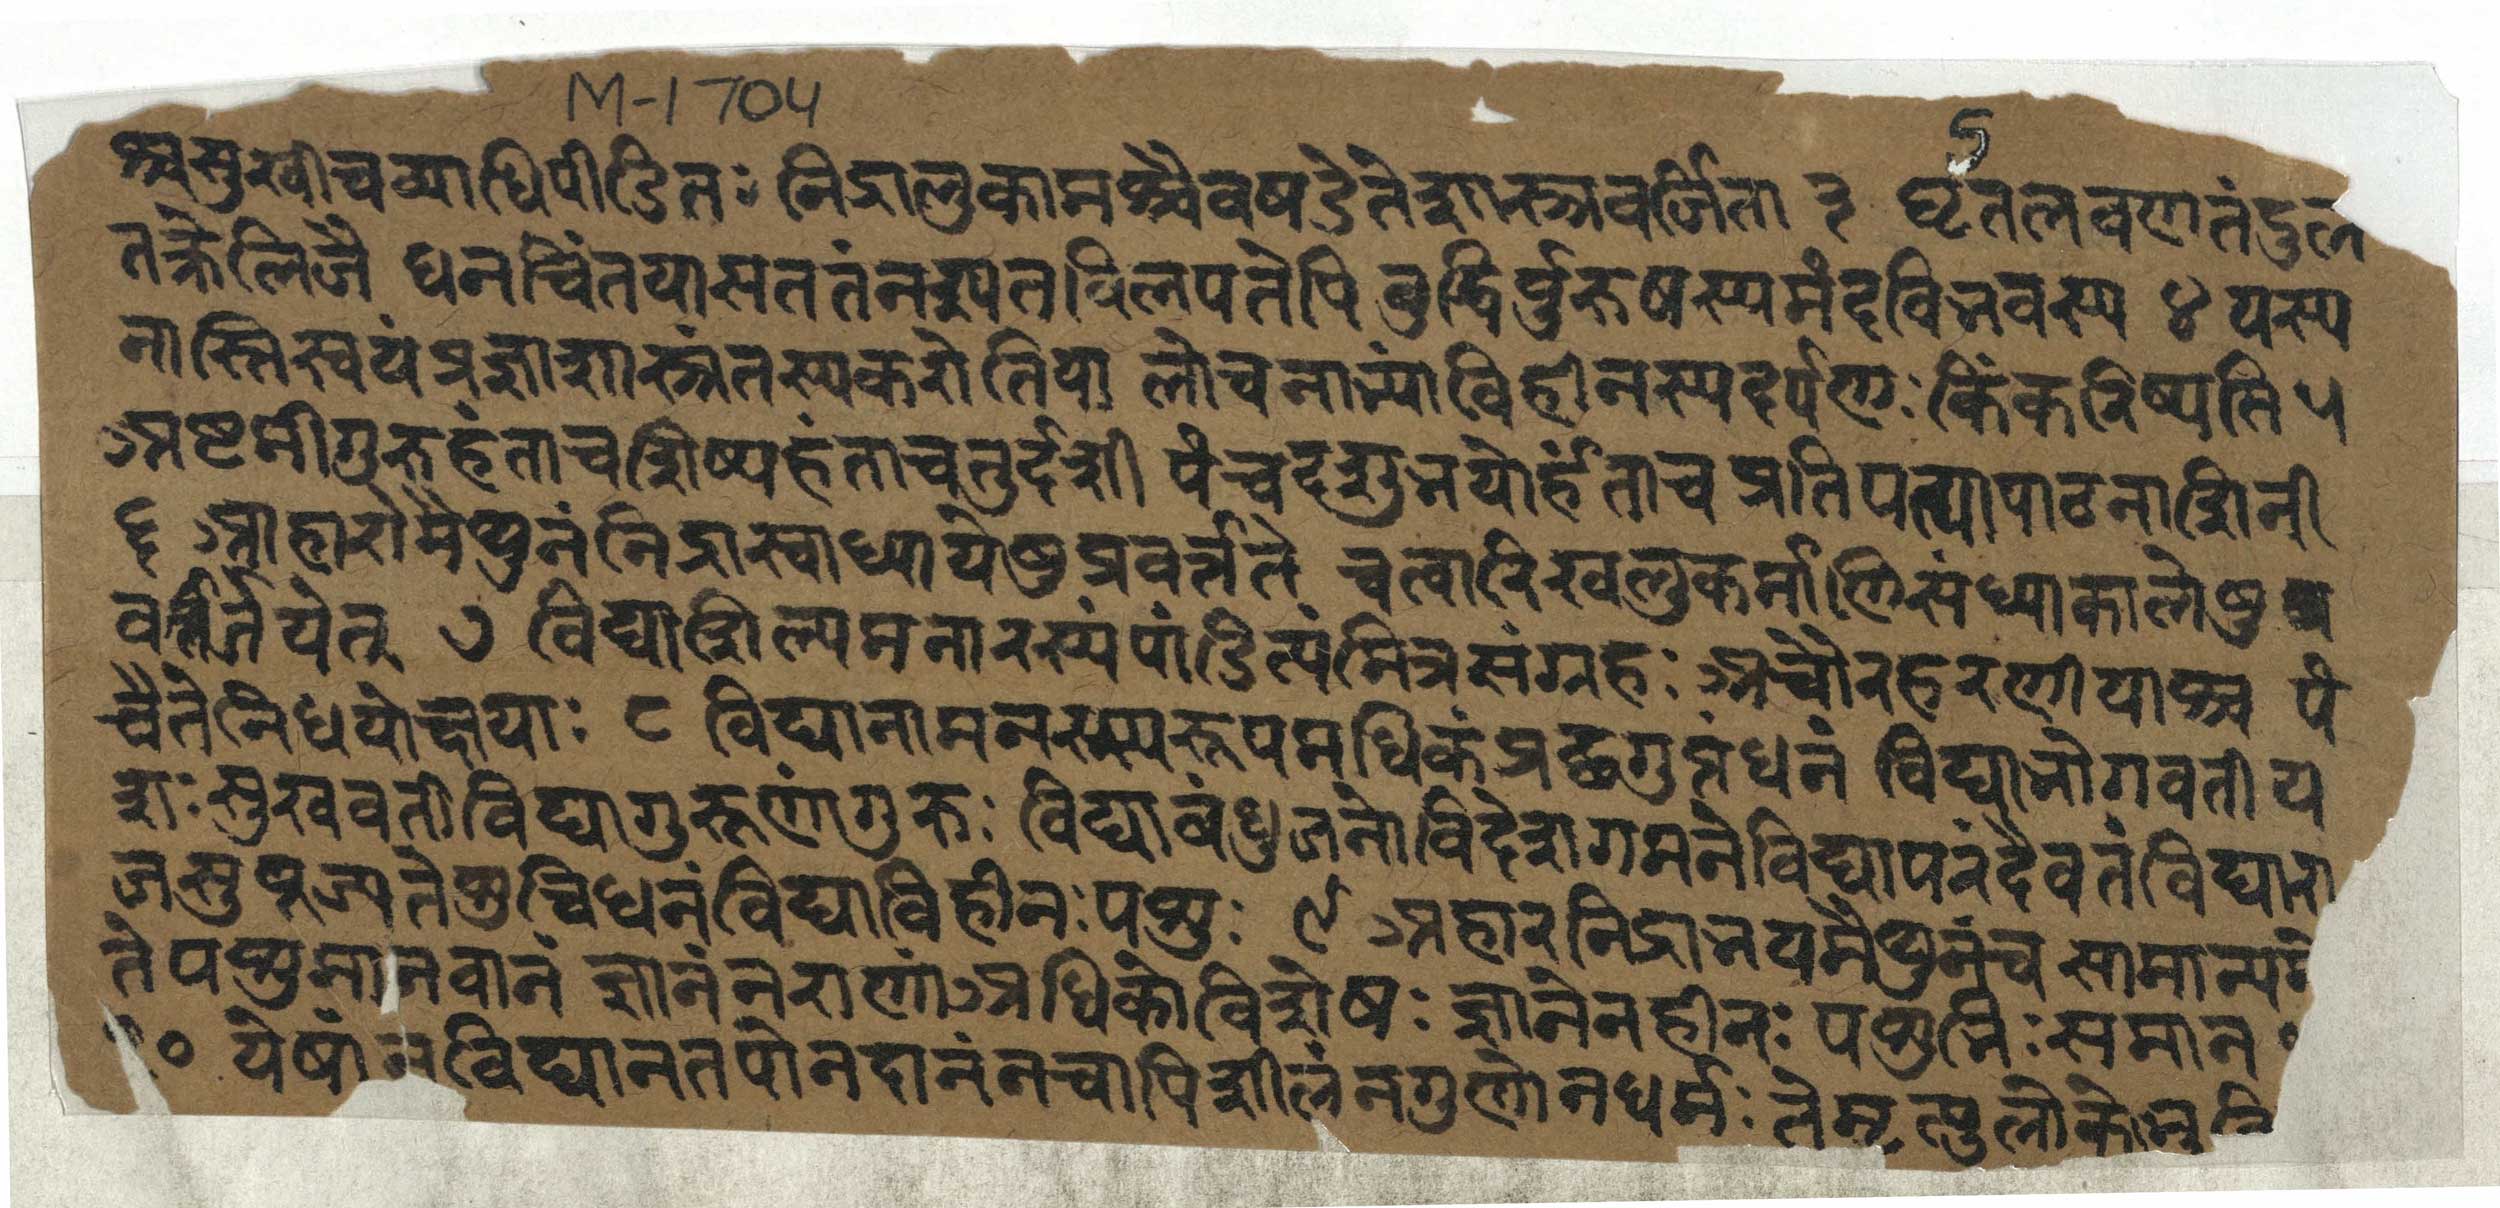 M-1704
5
श्चसुखीचव्याधिपीडितः निद्रालुकामश्चैवषडेतेशास्त्रवर्जिता ३ घृतलवणतंदुल
तक्रेलिजै धनचिंतयासततंनश्यतविलपतेपि बुद्धिर्पुरुषस्यमंदविभवस्य ४ यस्य
नास्तिस्वयंप्रज्ञाशास्त्रंतस्यकरोतिया लोचनाभ्यांविहीनस्यदर्पणः किंकरिष्यति ५
अष्टमीगुरुहंताचशिष्यहंताचतुर्दशी पंचदशुभयोर्हंताच प्रतिपत्पापाठनाशिनी
६ आहारोमैथुनंनिद्रास्वाध्यायेषुप्रवर्त्तते चत्वारिखलुकर्माणिसंध्याकालेषु
वर्जयेत् ७ विद्याशिल्पमनारस्यंपांडित्यंमित्रसंग्रहः अचौरहरणीयाश्च पं
चैतेनिधयोक्षयाः ८ विद्यानामनरस्यरूपमधिकंप्रछगुप्तंधनं विद्याभोगवतीय
शः सुखवतीविद्यागुरूणांगुरुः विद्याबंधुजनोविदेशगमनेविद्यापरंदैवतंविद्यारा
जसुपूज्यतेशुचिधनंविद्याविहीनः पशुः ९ अहारनिद्राभयमैथुनंच सामान्यमे
ते पशुमानवानं ज्ञानंनराणांअधिकोविशेषः ज्ञानेनहीनः पशुभिः समान
१० येषांनविद्यानतपोनदानंनचापिशीलंनगुणोनधर्मः तेमृत्युलोकेभुवि